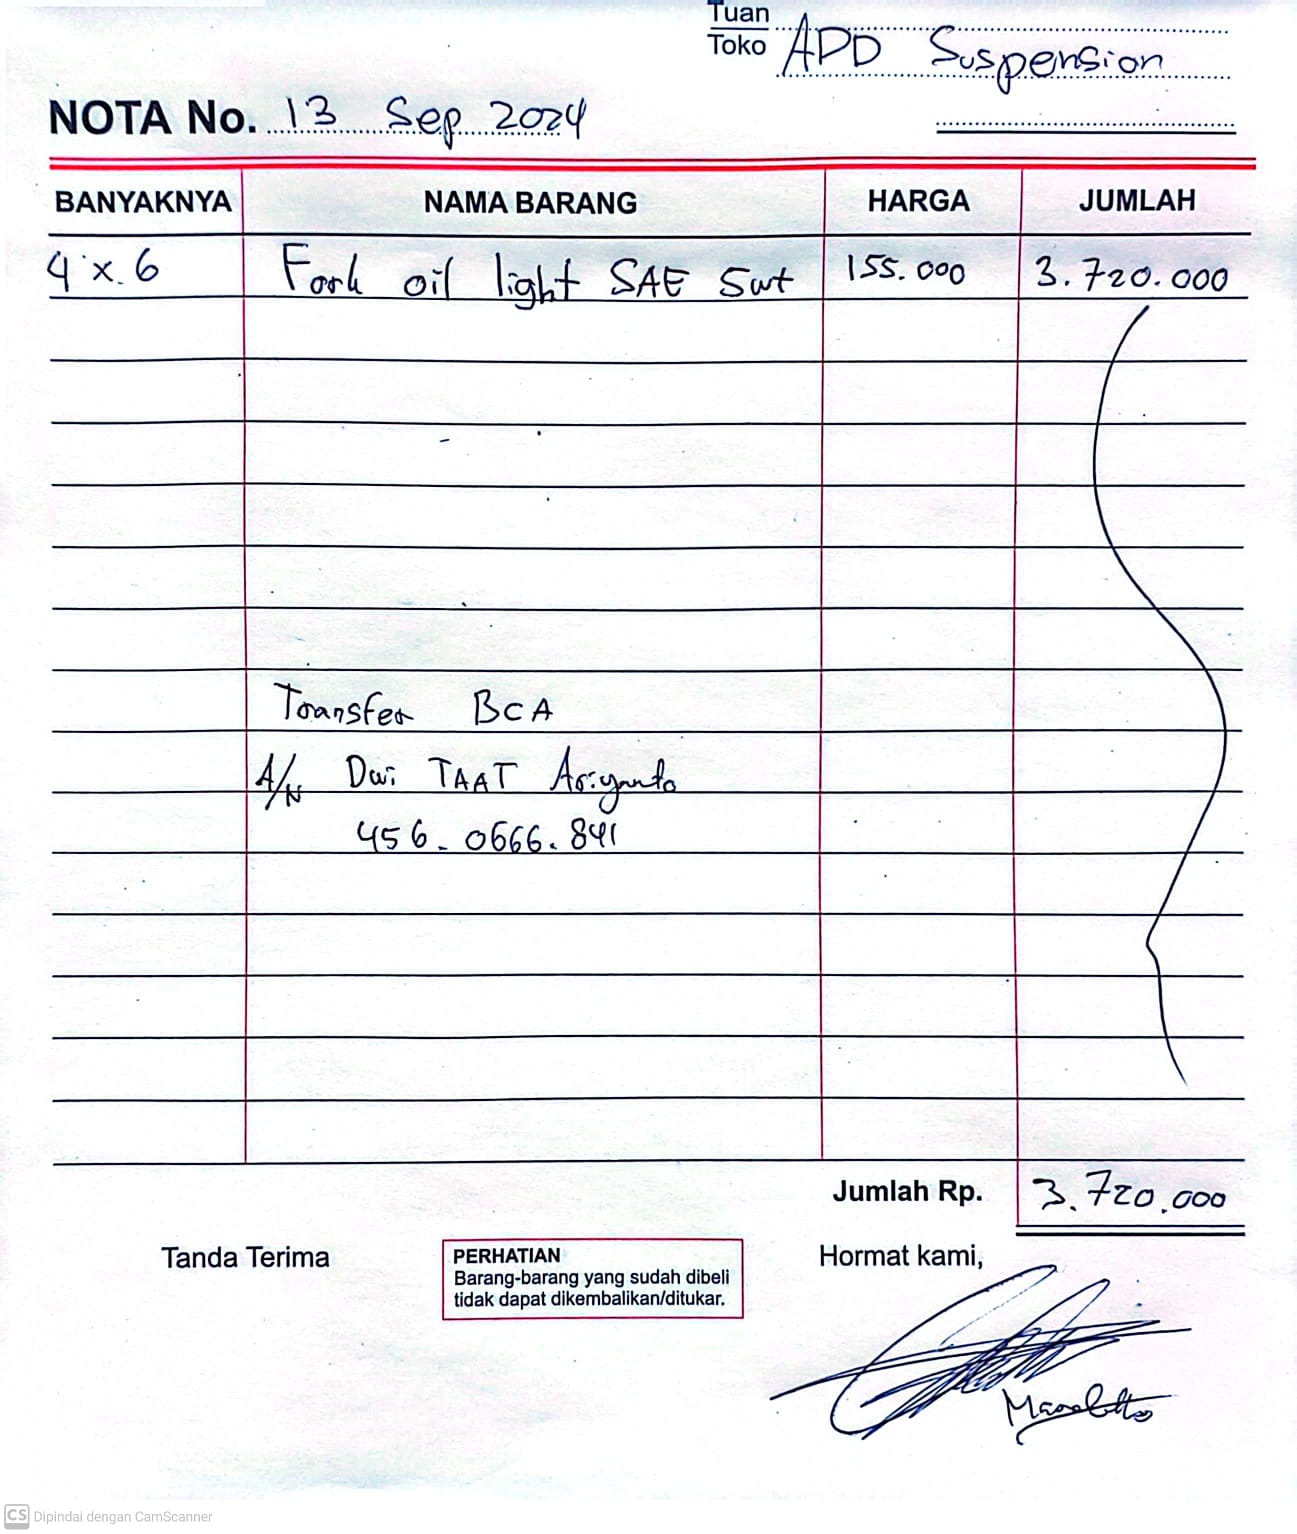 Tuan
Toko APD Suspension
NOTA No. 13 Sep 2024
BANYAKNYA NAMA BARANG HARGA JUMLAH
4 x 6 Fork oil light SAE 5wt 155.000 3.720.000
Transfer BCA
A/N Dwi TAAT Ariyanto
456-0666.841
Jumlah Rp. 3.720.000
Tanda Terima
PERHATIAN
Barang-barang yang sudah dibeli
tidak dapat dikembalikan/ditukar.
Hormat kami,
CS Dipindai dengan CamScanner